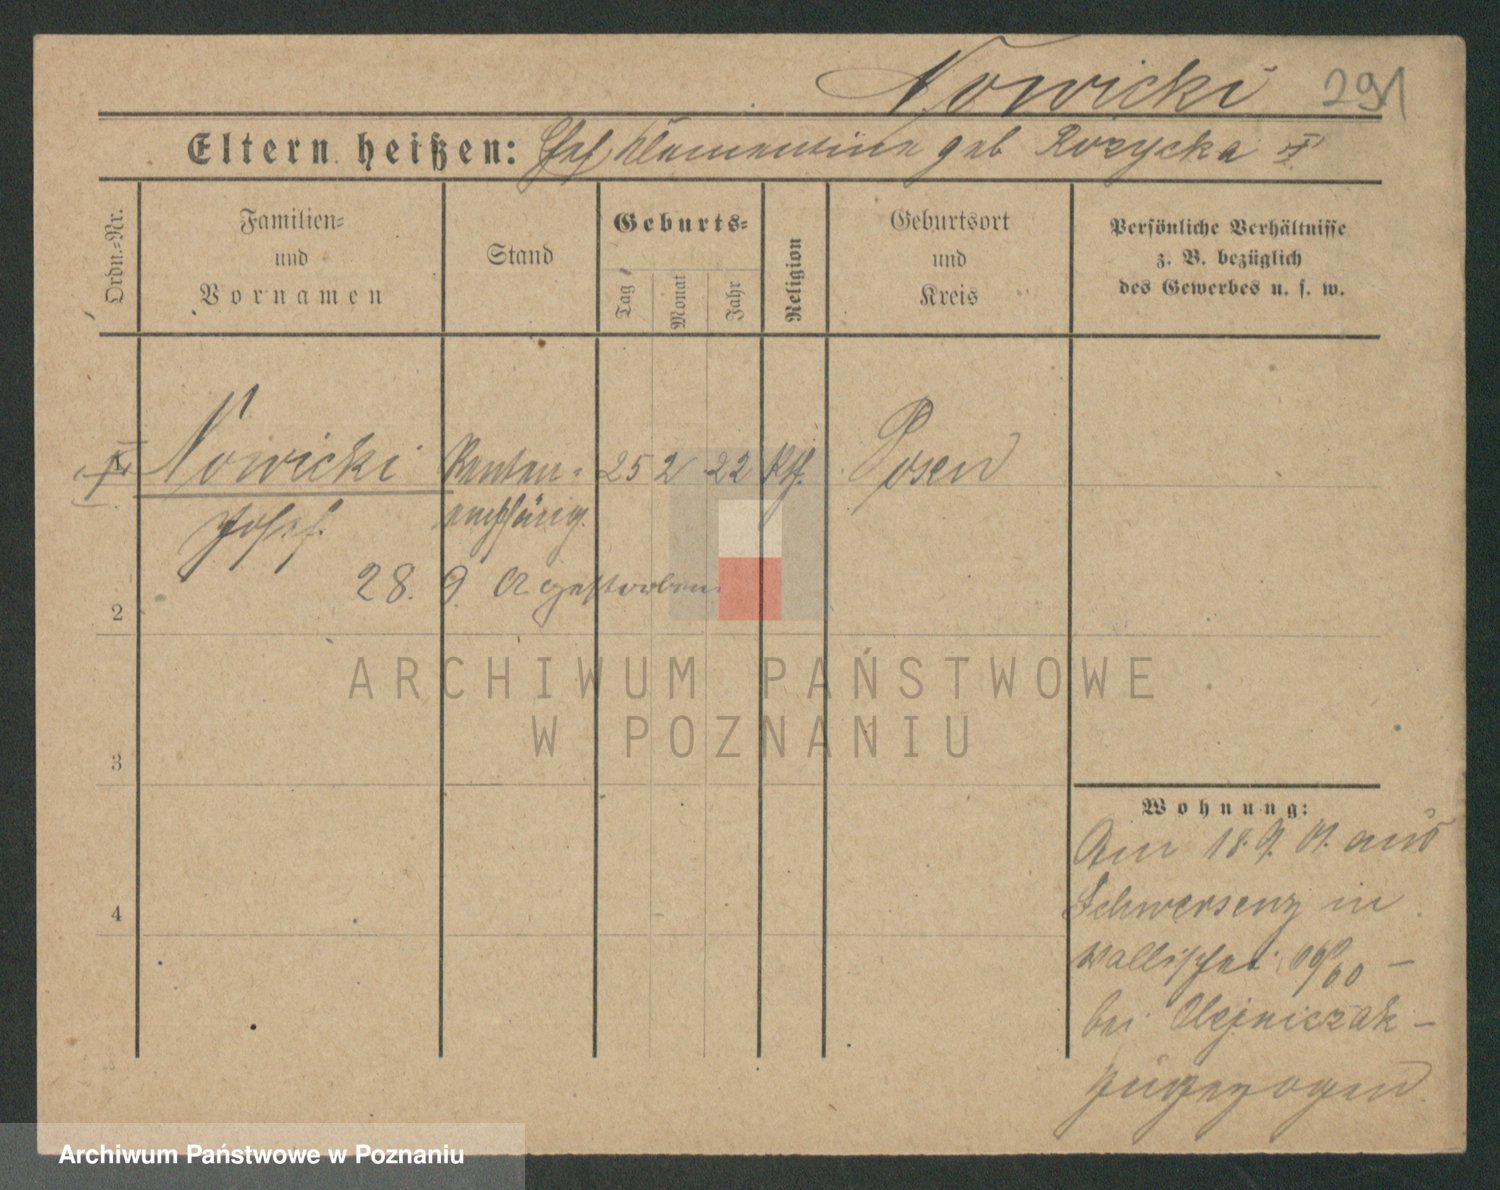 Nowicki 291
Eltern heißen: Jos, Klementine geb Rozycka
Ordn.-Nr.
Familien-
und
Vornamen
Stand
Geburts-
Tag
Monat
Jahr
Religion
Geburtsort
und
Kreis
Persönliche Verhältnisse
z. B. bezüglich
des Gewerbes u. s. w.
1 Nowicki Renten- 25 2 22 Kth. Posen
Josef empfäng.
28. 9. gestorben.
2
3
4
Wohnung:
Am 18. 9. 01. aus
Schwersenz in
Wallischei
bei Olejniczak –
zugezogen.
ARCHIWUM PAŃSTWOWE
W POZNANIU
Archiwum Państwowe w Poznaniu